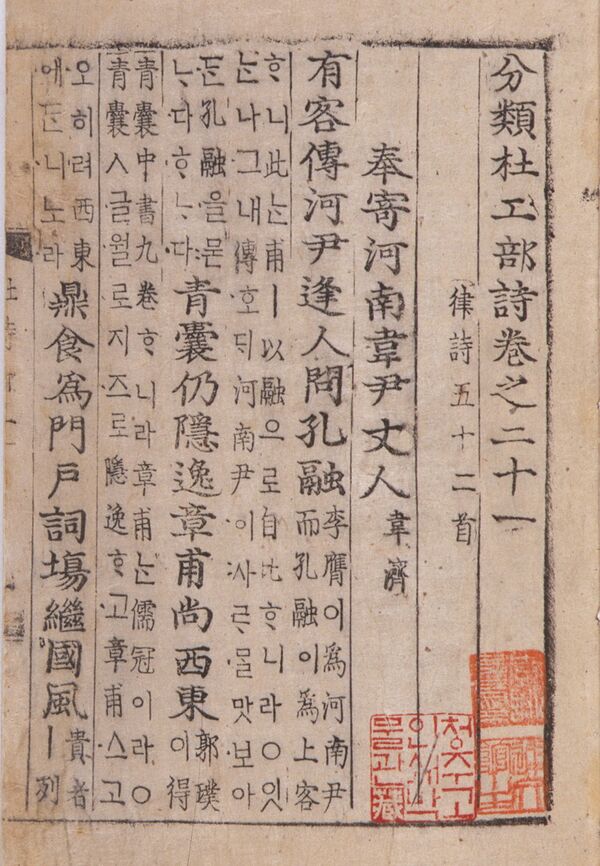 分類杜工部詩卷之二十一
律詩五十二首
奉寄河南韋尹丈人 韋濟
有客傳河尹逢人問孔融 李膺이爲河南尹
而孔融이爲上客
ᄒᆞ니此ᄂᆞᆫ甫ㅣ以融으로自比ᄒᆞ니라○잇
ᄂᆞᆫ나그내傳호ᄃᆡ河南尹이사ᄅᆞᄆᆞᆯ맛보아
ᄃᆞᆫ孔融을묻
ᄂᆞ다ᄒᆞᄂᆞ다 青囊仍隱逸章甫尚西東 郭璞
이得
青囊中書九卷ᄒᆞ니라章甫ᄂᆞᆫ儒冠이라○
青囊ㅅ글월로지즈로隱逸ᄒᆞ고章甫스고
오히려西東
애ᄃᆞᆫ니노라 鼎食爲門戶詞塲繼國風 貴者
ㅣ列
청주고
인쇄박
물관藏